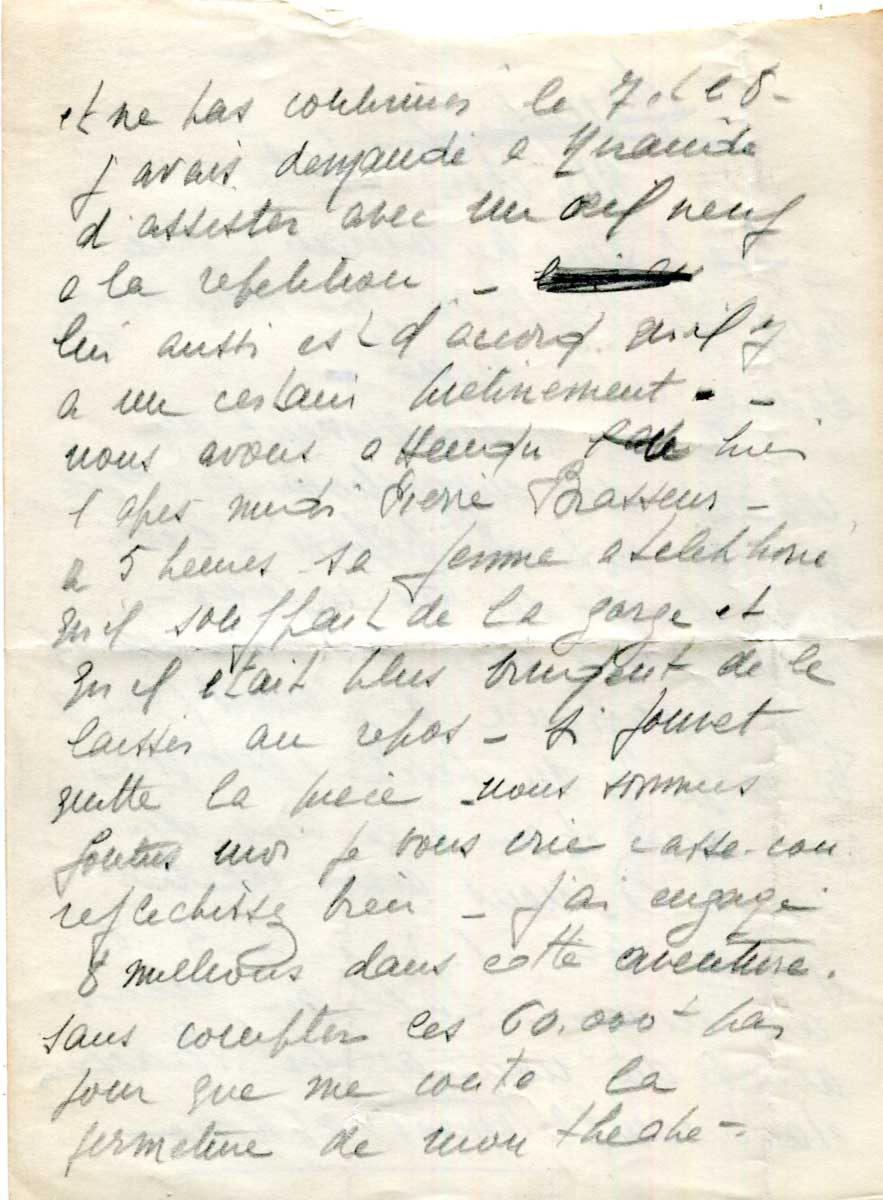 et ne pas continuer le 7.
j avais demandé a Y Mirande
d'assister avec un œil neuf
a la repetition -
lui aussi est d'accord qu il y
a un certain pietinement - -
nous avons attendu hier
l apres midi Pierre Brasseur -
a 5 heures sa femme a telephoné
qu il souffrait de la gorge et
qu il etait plus prudent de le
laisser au repos - Si Jouvet
quitte la piece - nous sommes
foutus moi je vous crie casse-cou
reflechissez bien - J'ai engagé
8 millions dans cette aventure.
sans compter les 60.000 par
jour que me coute la
fermeture de mon theatre -